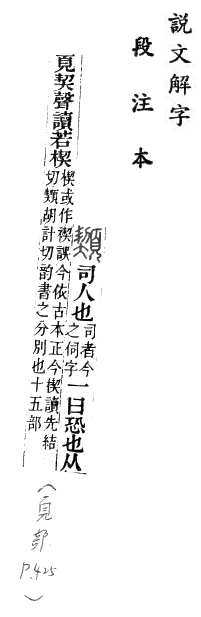 說文解字
段注本
司人也司者今之伺字一曰恐也从
契聲讀若楔楔或作禊誤今依古本正今楔讀先結切胡計切韵書之分別也十五部
(頁部
P.425)